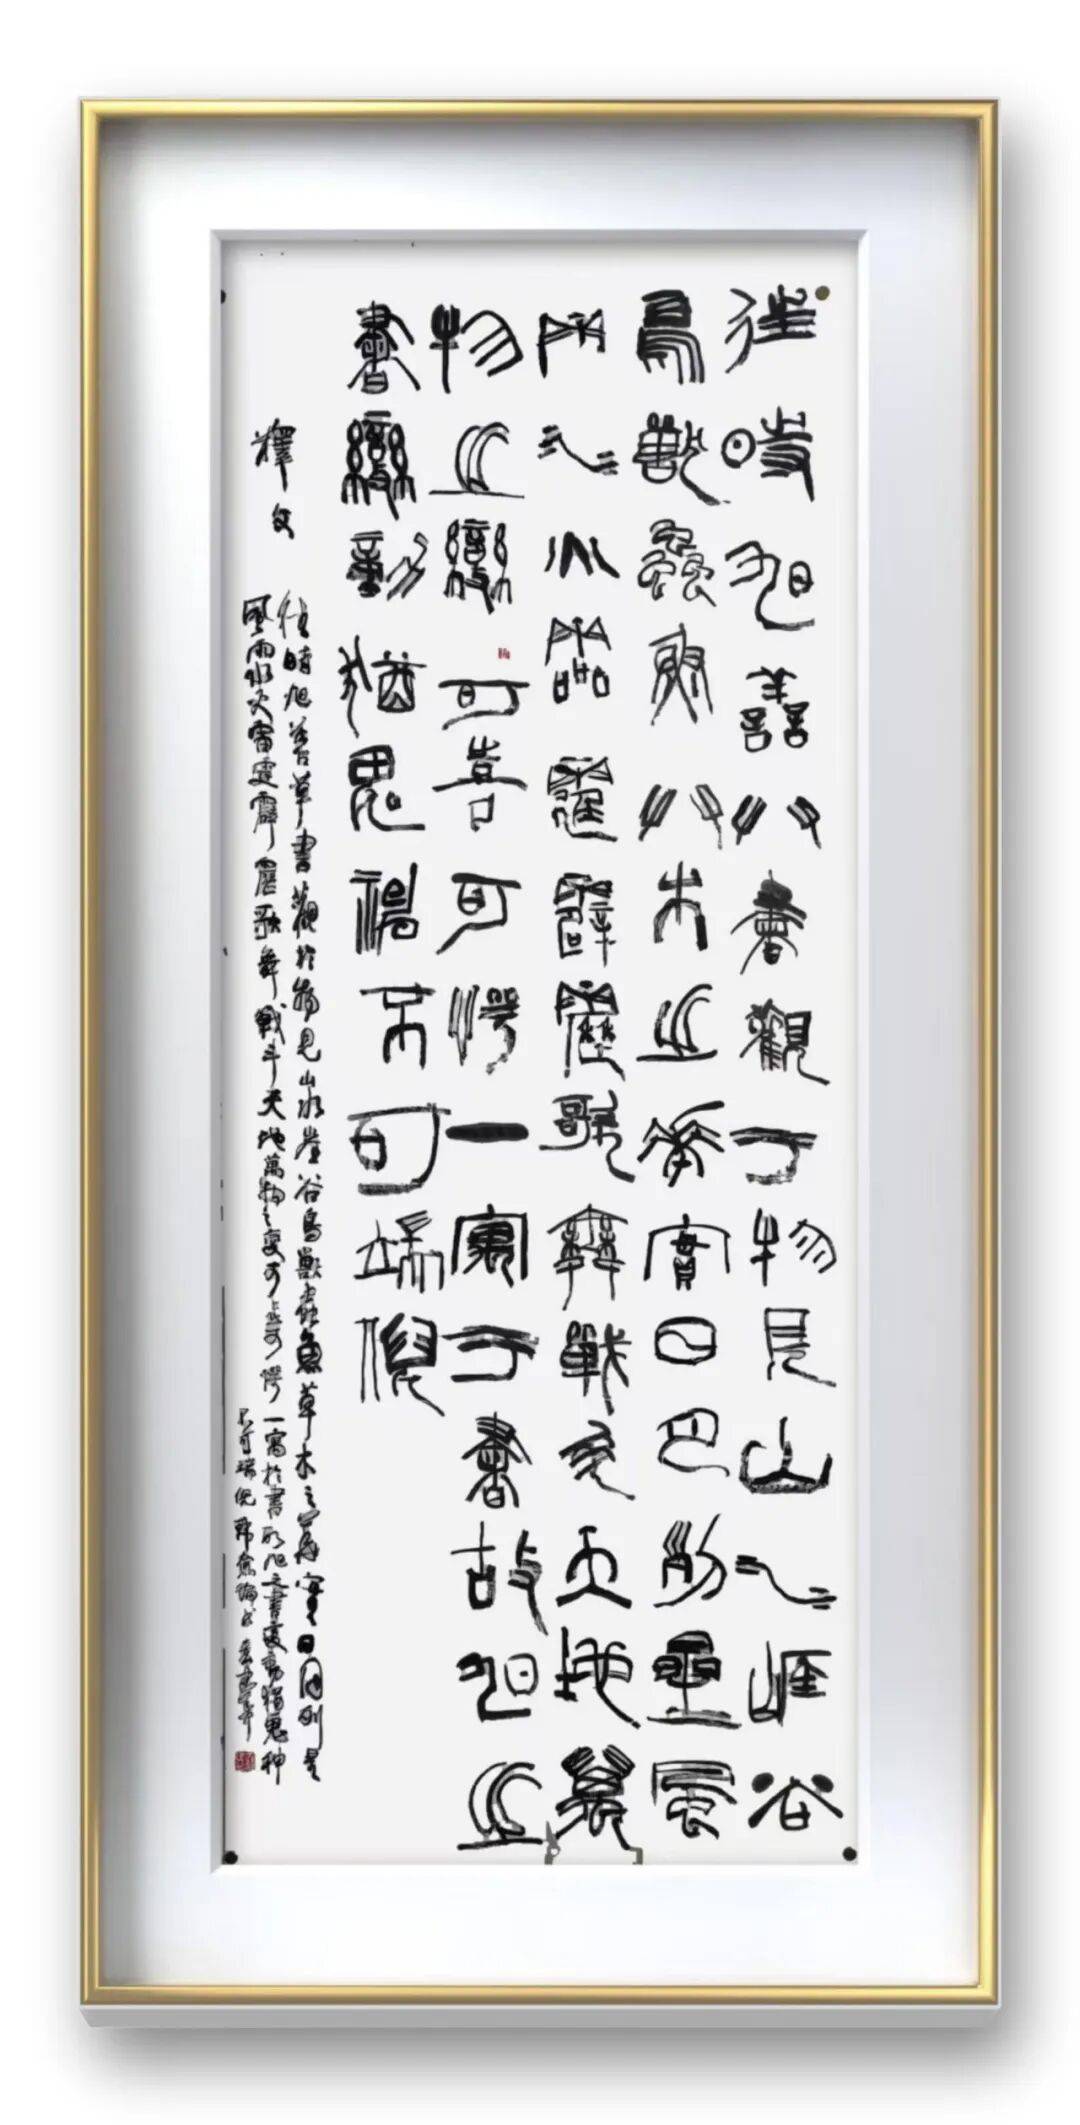 往時旭善艸書觀于物見山水崖谷
鳥獸蟲魚艸木之華實日月列星風
雨水火雷霆霹靂歌舞戰鬥天地萬
物之變可喜可愕一寓于書故旭之
書變動猶鬼神不可端倪
釋文
往時旭善草書觀於物見山水崖谷鳥獸蟲魚草木之花實日月列星
風雨水火雷霆霹靂歌舞戰斗天地萬物之變可喜可愕一寓於書故旭之書變動猶鬼神
不可端倪韓愈論書